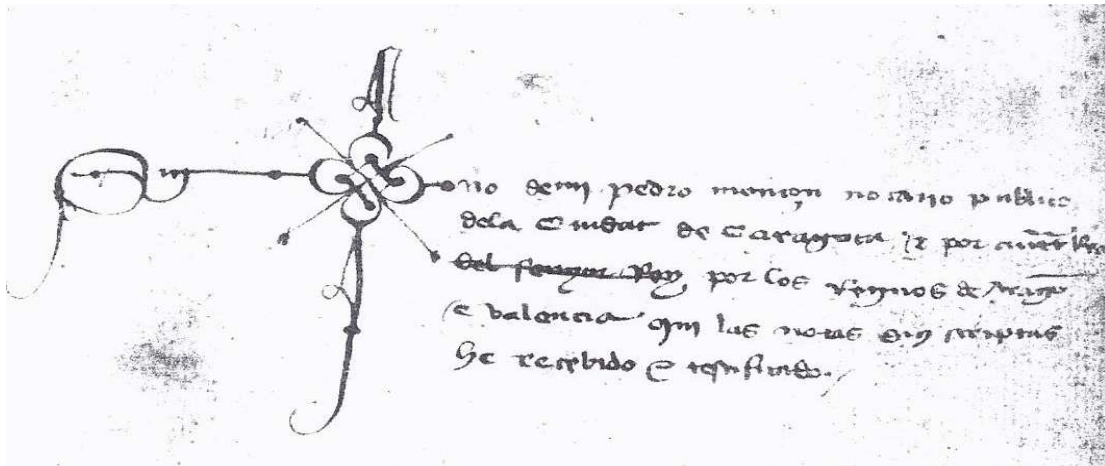 Sig no de mi pedro moncon notario publico
dela Ciudat de Caragoca Et por auct Rea
del senyor Rey por los Regnos de Arago
e valencia qui las notas sius scriptas
he recebido e testificado.